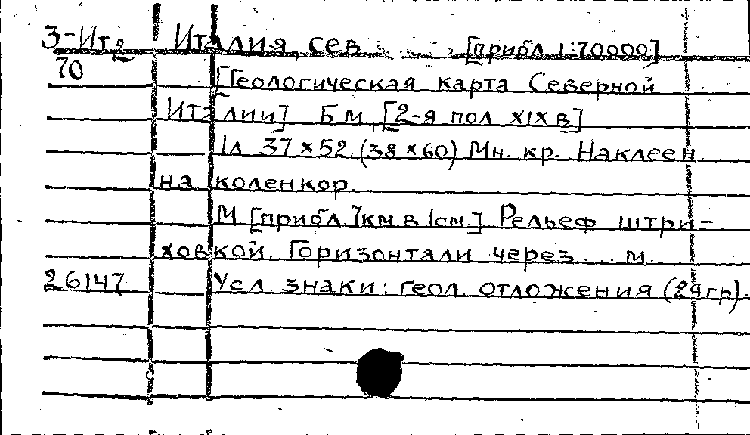 З-Ит2 Италия, сев. [прибл. 1:70000]
70 [Геологическая карта Северной
Италии] Б м, [2-я пол XIX в]
1л 37×52 (38×60) Мн. кр. Наклеен
на коленкор.
М [прибл. 7км в 1см.] Рельеф штри-
ховкой. Горизонтали через ... м
26147 Усл знаки: геол. отложения (24гр).